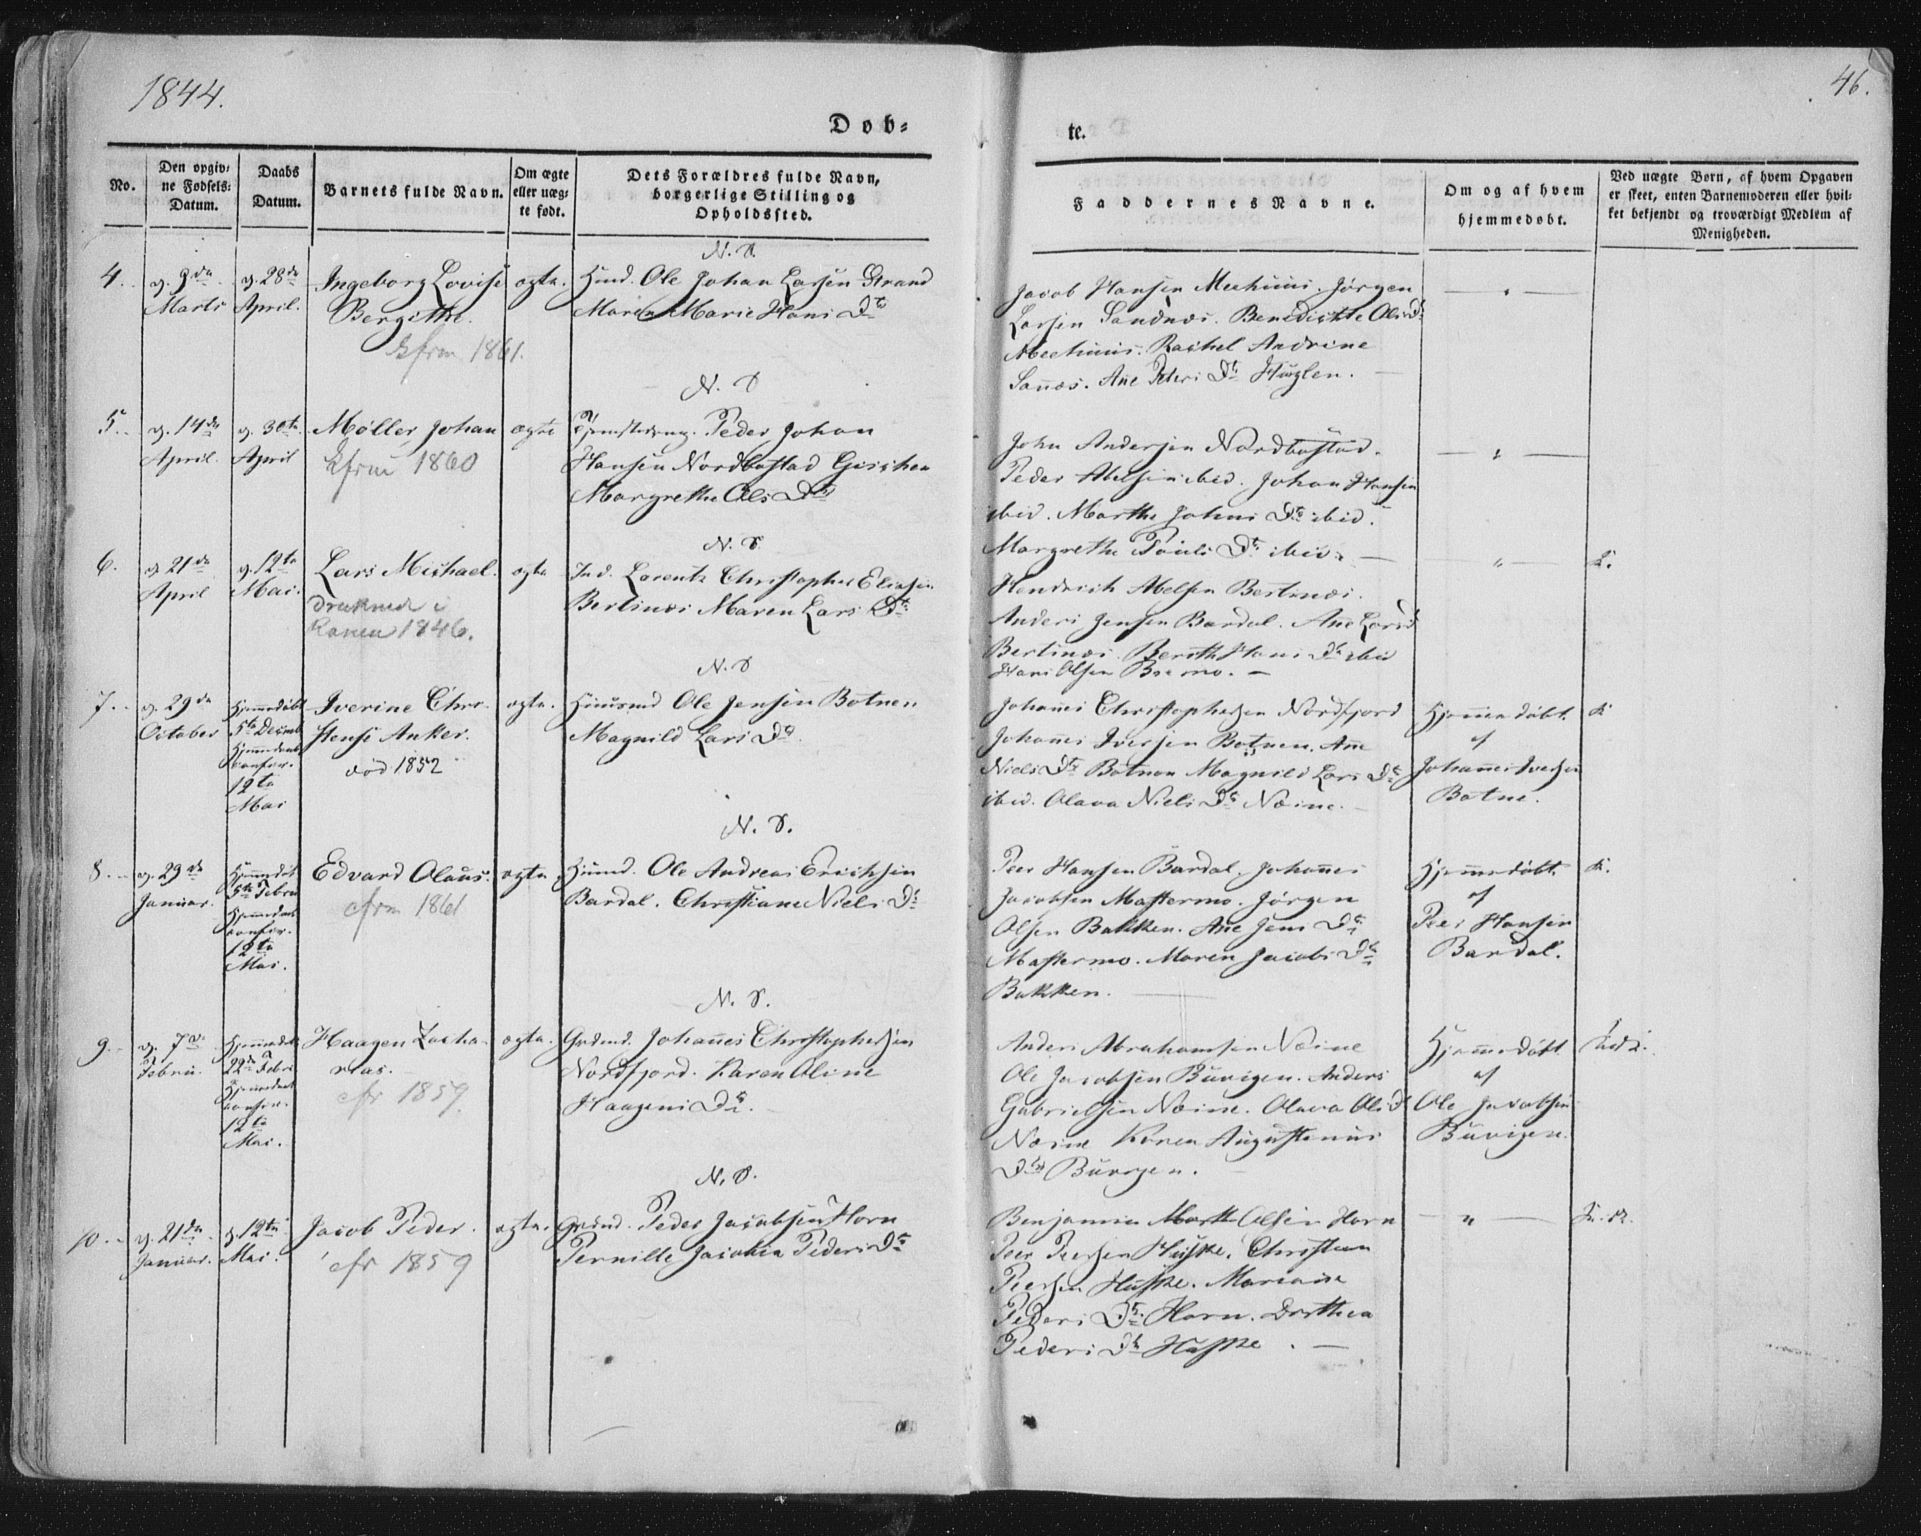 1844.
46.
Døb-
te.
No.
Den opgiv-
ne Fødsels-
Datum.
Daabs
Datum.
Barnets fulde Navn.
Om ægte
eller uæg-
te født.
Dets Forældres fulde Navn,
borgerlige Stilling og
Opholdssted.
Faddernes Navne.
Om og af hvem
hjemmedøbt.
Ved uægte Børn, af hvem Opgaven
er skeet, enten Barnemoderen eller hvil-
ket bekjendt og troværdigt Medlem af
Menigheden.
N. S.
4.
Marts
28de
April.
Ingeborg Lovise
Bergithe.
Cfrm 1861.
ægte.
Huusd. Ole Johan Larsen Strand
Maren Marie Hans Dtr
Jacob Hansen Jørgen
Larsen Sandnæs. Benedichte Ols D.
Rachel Andrine
Sanæs. Ane Peders Dtr Huglen.
N. S
5.
14de
April.
30te
April
Møller Johan
Cfrm 1860
ægte
Peder Johan
Hansen Nordbostad
Margrethe Ols Dtr
John Andersen Nordbostad.
Peder Abelsen ibid. Johan Hansen
ibid. Marthe Johns Dtr ibid.
Margrethe Pouls Dtr ibid.
N. S
6.
21de
April
12te
Mai.
Lars Michael.
druknede i
Ranen 1846.
ægte
Ind. Lorentz Christopher Eliasen
Bertinæs Maren Lars Dtr
Hendrich Abelsen Bertinæs.
Anders Jensen Bardal. Ane Lars D
Bertinæs. Berith Hans Dtr ibid
Hans Olsen Bremo.
N. S
7.
29de
October
Hjemmedøbt
5te Decemb
Hjemmedaab
confir.
12te
Mai
Iverine Chr-
stense Anker.
død 1852
ægte.
Huusmd Ole Jensen Botnen
Magnild Lars Dtr
Johannes Christophersen Nordfjord
Johannes Iversen Botnen. Ane
Niels Dtr Botnen Magnild Lars Dtr
ibid. Olava Niels Dtr Næine.
Hjemmedøbt.
af
Johannes Iversen
Botne.
N. S.
8.
29de
Januar.
Hjemmedøbt
5te Febru
Hjemmedaab
confir.
12te
Mai.
Edvard Olaus.
cfrm 1861
ægte
Huusmd. Ole Andreas Erichsen
Bardal. Christiane Niels Dtr
Peer Hansen Bardal. Johannes
Jacobsen Mastermo. Jørgen
Olsen Bakken. Ane Jens Dtr
Mastermo. Maren Jacobs Dtr
Bakken.
Hjemmedøbt.
af
Peer Hansen
Bardal.
N. S.
9.
7de
Febru.
Hjemmedøbt
22de Febru
Hjemmedaab
confir.
12te
Mai.
Haagen Zacha-
rias.
cfr 1859.
ægte.
Grdmd. Johannes Christophersen
Nordfjord. Karen Oline
Haagens Dtr.
Anders Abrahamsen Næine
Ole Jacobsen Buvigen. Anders
Gabrielsen Næine. Olava Ols D
Næine Karen Augustinus
Dtr Buvigen.
Hjemmedøbt
af
Ole Jacobsen
Buvigen.
N. S.
10.
21de
Januar.
12te
Mai.
Jacob Peder.
cfr 1859
ægte.
Grdmd. Peder Jacobsen Horn
Pernille Jacobia Peders Dtr
Benjamin Olsen Horn
Peer Peersen Huske. Christian
Peersen Huske. Mariane
Peders Dtr. Horn. Dorthea
Peders Dtr Huske.